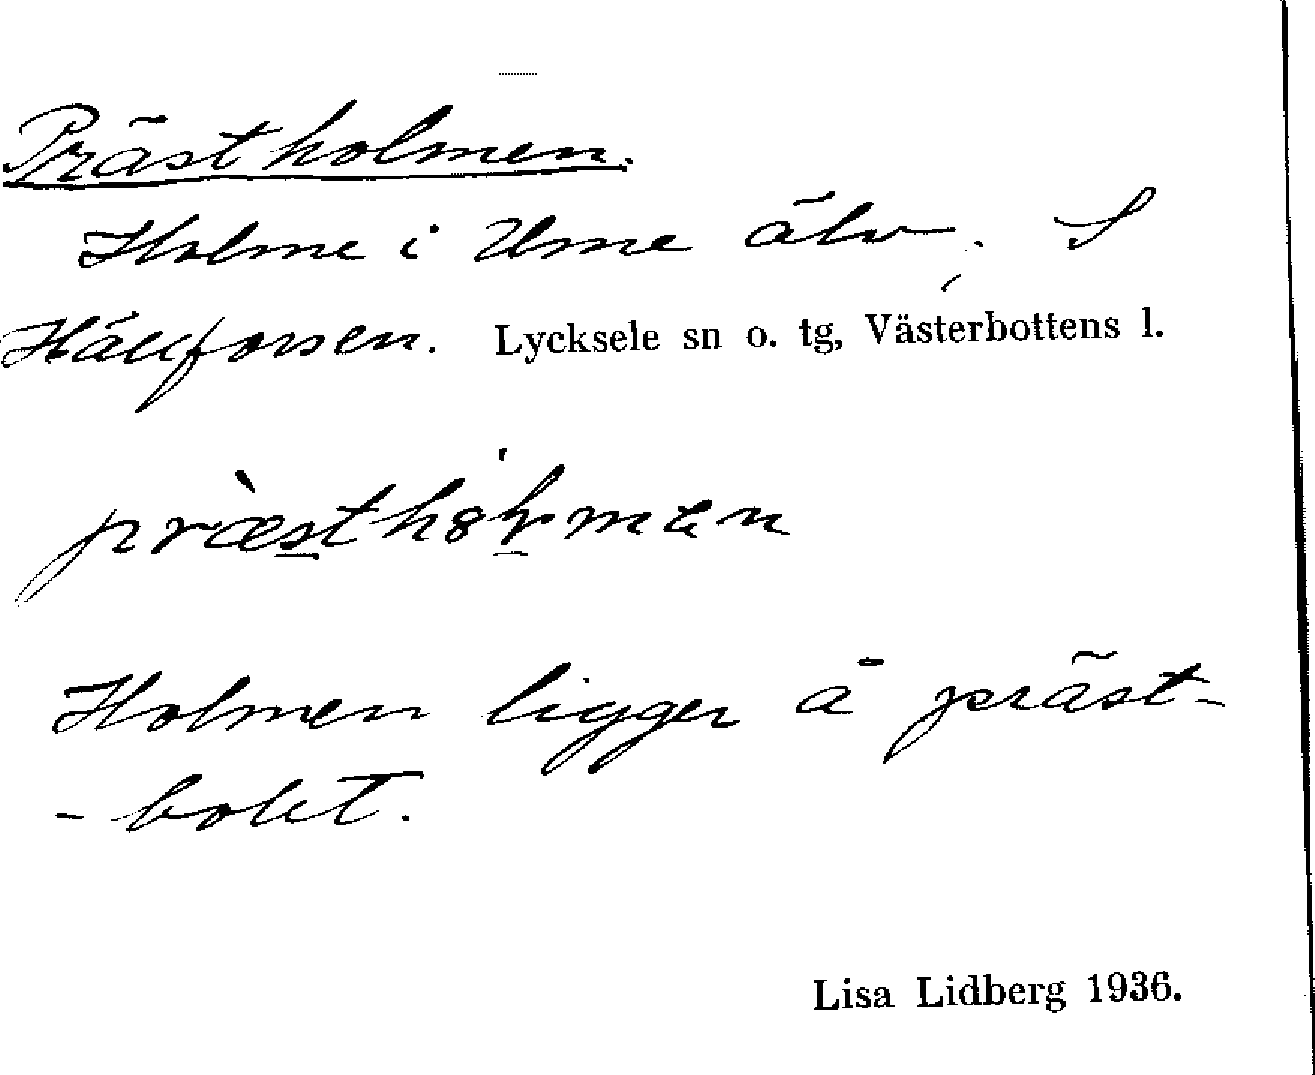 Prästholmen.
Holme i Ume älv, S
Hällforsen. Lycksele sn o. tg, Västerbottens l.
Holmen ligger å präst-
-bolet.
Lisa Lidberg 1936.